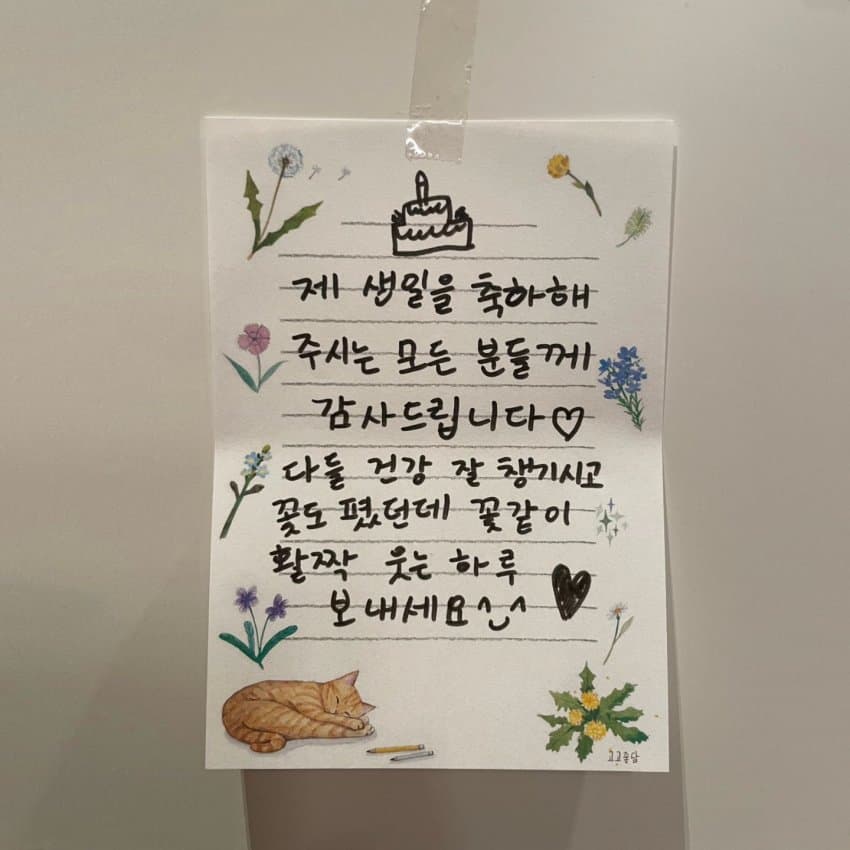 제 생일을 축하해
주시는 모든 분들께
감사드립니다♡
다들 건강 잘 챙기시고
꽃도 폈던데 꽃같이
활짝 웃는 하루
보내세요^_^ ♥